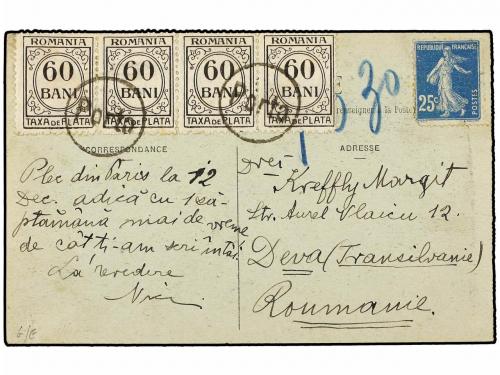 ROMANIA ROMANIA ROMANIA ROMANIA
60 60 60 60
BANI BANI BANI BANI
TAXA DE PLATA TAXA DE PLATA TAXA DE PLATA TAXA DE PLATA
Porto Porto
30
REPUBLIQUE FRANÇAISE
25c
POSTES
CORRESPONDANCE
Plec din Paris la 12
Dec. adică cu 1 să-
ptămână mai de vreme
de cât ti-am scri întâi
La revedere
ADRESSE
Kreffly Margit
Str. Aurel Vlaicu 12.
Deva (Transilvanie)
Roumanie.